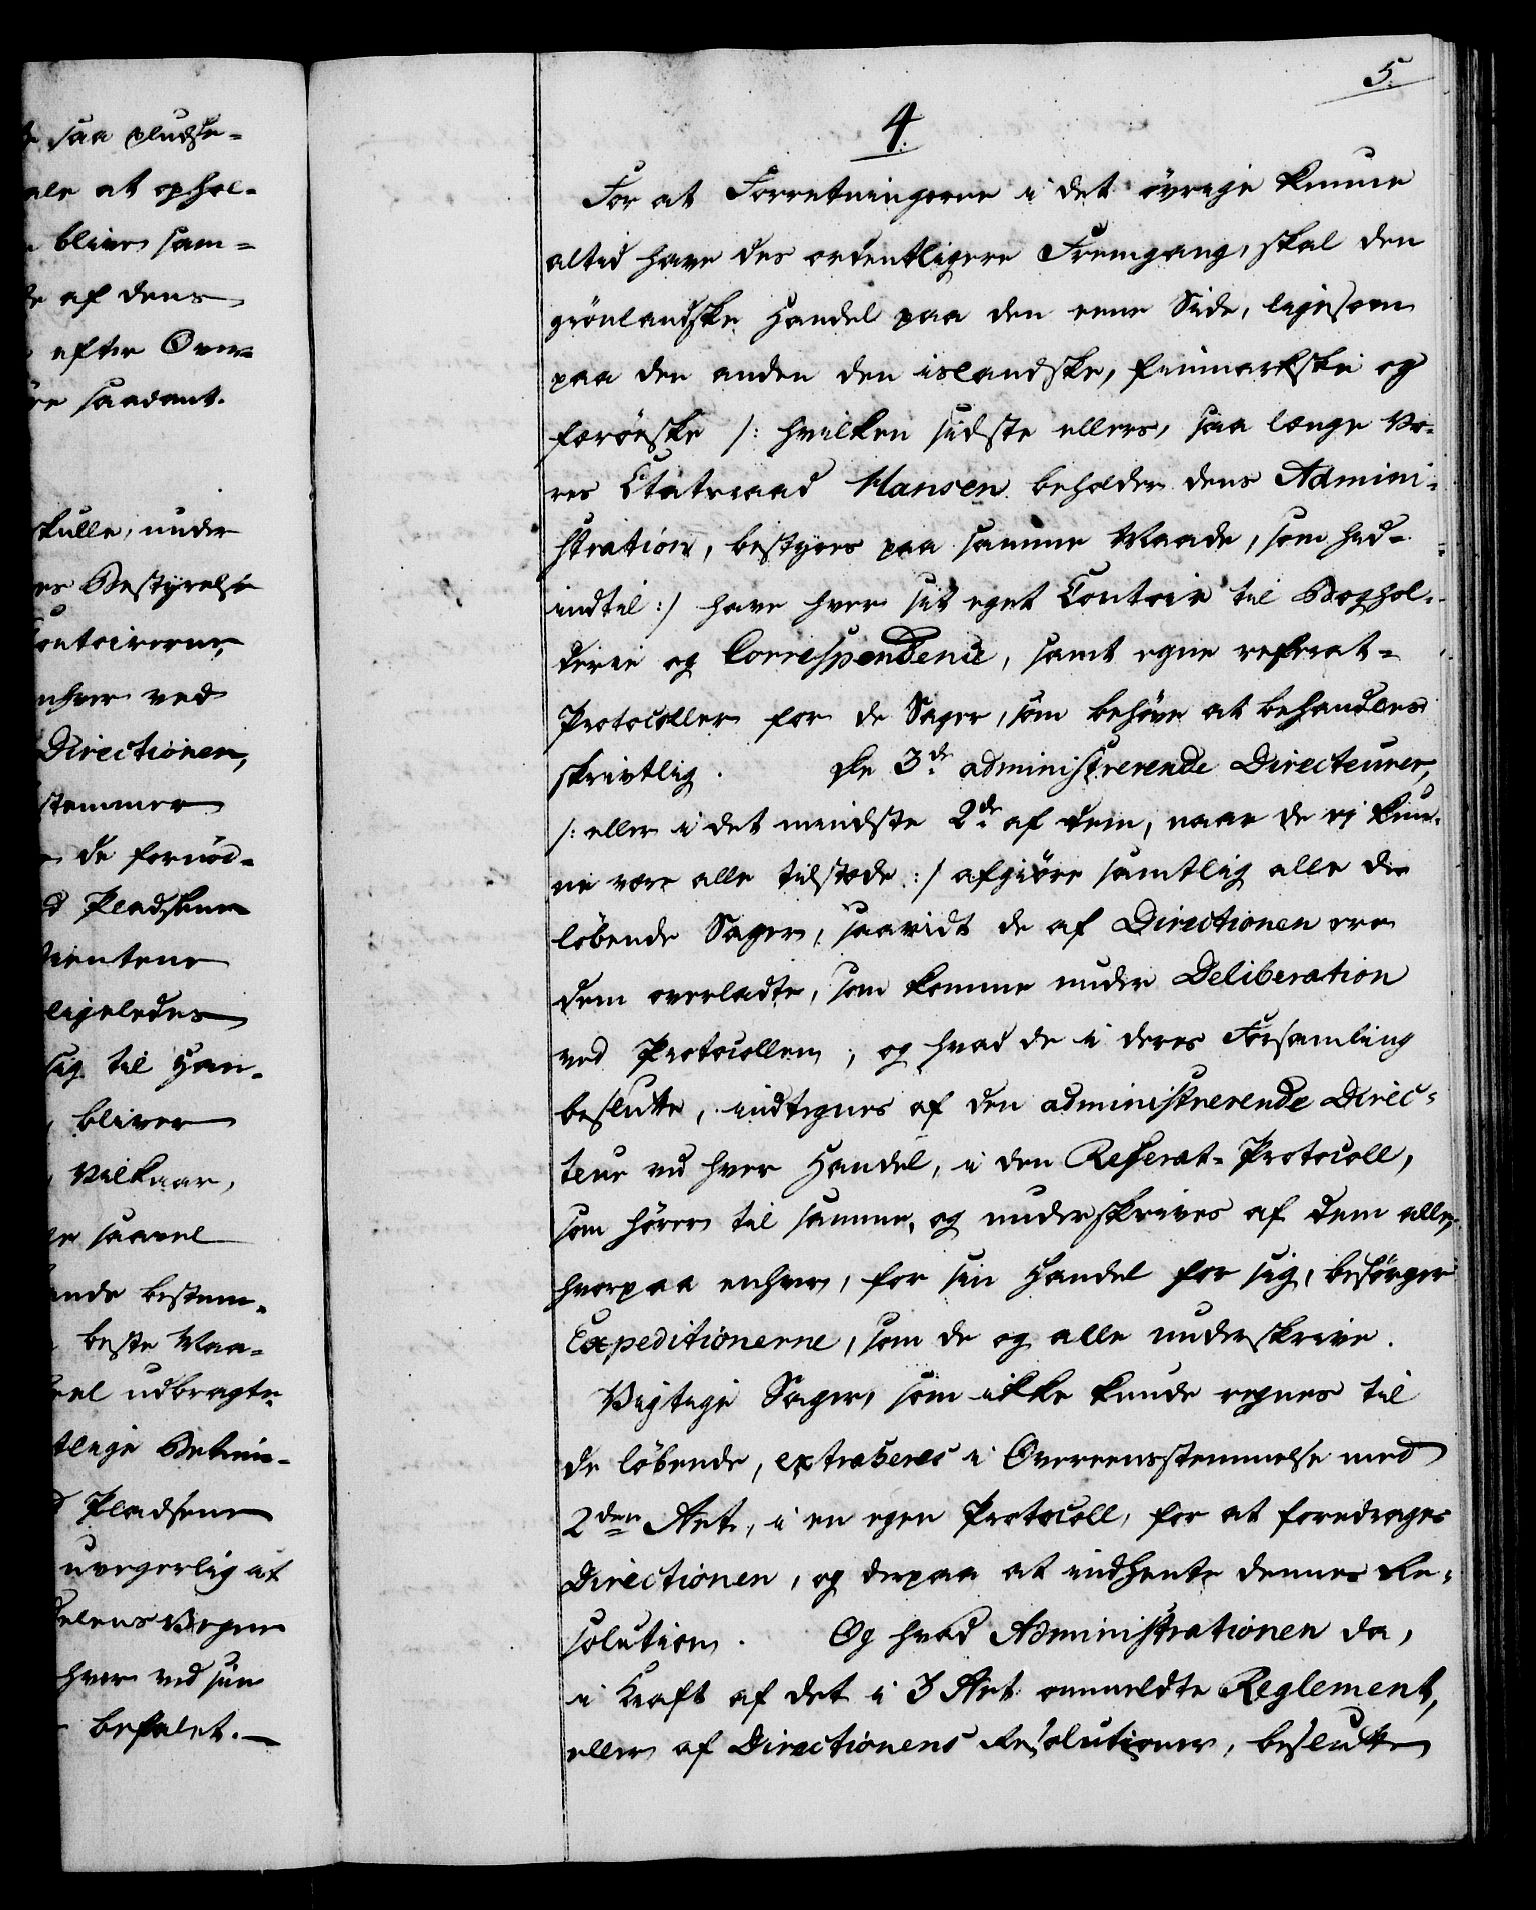 5.
4.
For at Forretningerne i det övrige kunne
altid have des ordentligere Fremgang, skal den
grönlandske Handel paa den eene Side, ligesom
paa den anden den islandske, finmarkske og
færöeske /: hvilken sidste ellers, saa længe Vo-
res Etatsraad Hansen beholder dens Admini-
stration, bestyres paa samme Maade, som hid-
indtil :/ have hver sit eget Contoir til Boghol-
derie og Correspondence, samt egne referat-
Protocoller for de Sager, som behöve at behandles
skrivtlig. De 3de administrerende Directeurer,
/: eller i det mindste 2de af dem, naar de ej kun-
ne være alle tilstæde :/ afgiöre samtlig alle de
löbende Sager, saavidt de af Directionen ere
dem overladte, som komme under Deliberation
ved Protocollen; og hvad de i deres Forsamling
beslutte, indtegnes af den administrerende Direc-
teur ved hver Handel, i den Referat-Protocoll,
som hörer til samme, og underskrives af dem alle;
hvorpaa enhver, for sin Handel for sig, besörger
Expeditionerne, som de og alle underskrive.
Vigtige Sager, som ikke kunde regnes til
de löbende, extraheres i Overeensstemmelse med
2den Art., i en egen Protocoll, for at foredrages
Directionen, og derpaa at indhente dennes Re-
solution. Og hvad Administrationen da,
i Kraft af det i 3 Art. ommeldte Reglement,
eller af Directionens Resolutioner, beslutter
saa pludse-
ale at ophol-
bliver sam-
af dens
efter Over-
saadant.
skulle, under
Bestyrelse
Contoirerne,
enhver ved
Directionen,
stemmer
de fornöd-
Pladsen
tientere
ligeledes
sig til Han-
bliver
Vilkaar,
saavel
ende bestem-
beste Maa-
udbragte
tlige Betien-
Pladsene
uvegerlig at
delens Vegne
hver ved sin
befalet.